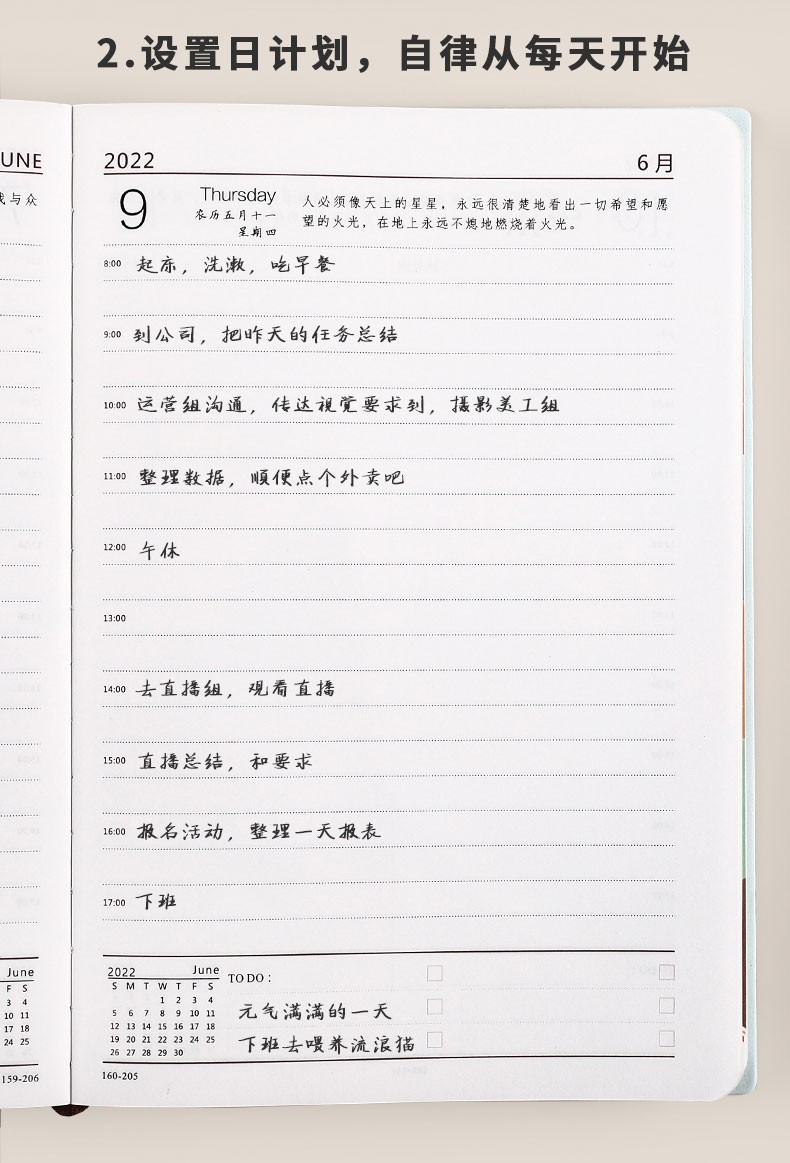 2.设置日计划，自律从每天开始
UNE
与众
2022
6月
9
Thursday
农历五月十一
星期四
人必须像天上的星星，永远很清楚地看出一切希望和愿
望的火光，在地上永远不熄地燃烧着火光。
8:00 起床，洗漱，吃早餐
9:00 到公司，把昨天的任务总结
10:00 运营组沟通，传达视觉要求到，摄影美工组
11:00 整理数据，順便点个外卖吧
12:00 午休
13:00
14:00 去直播组，观看直播
15:00 直播总结，和要求
16:00 报名活动，整理一天报表
17:00 下班
June
F S
3 4
10 11
17 18
24 25
159-206
2022 June
S M T W T F S
1 2 3 4
5 6 7 8 9 10 11
12 13 14 15 16 17 18
19 20 21 22 23 24 25
26 27 28 29 30
TO DO：
元气满满的一天
下班去喂养流浪猫
160-205